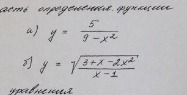 асть определения функции
а) y = 5 / (9 - x²)
б) y = √((3 + x - 2x²) / (x - 1))
уравнения